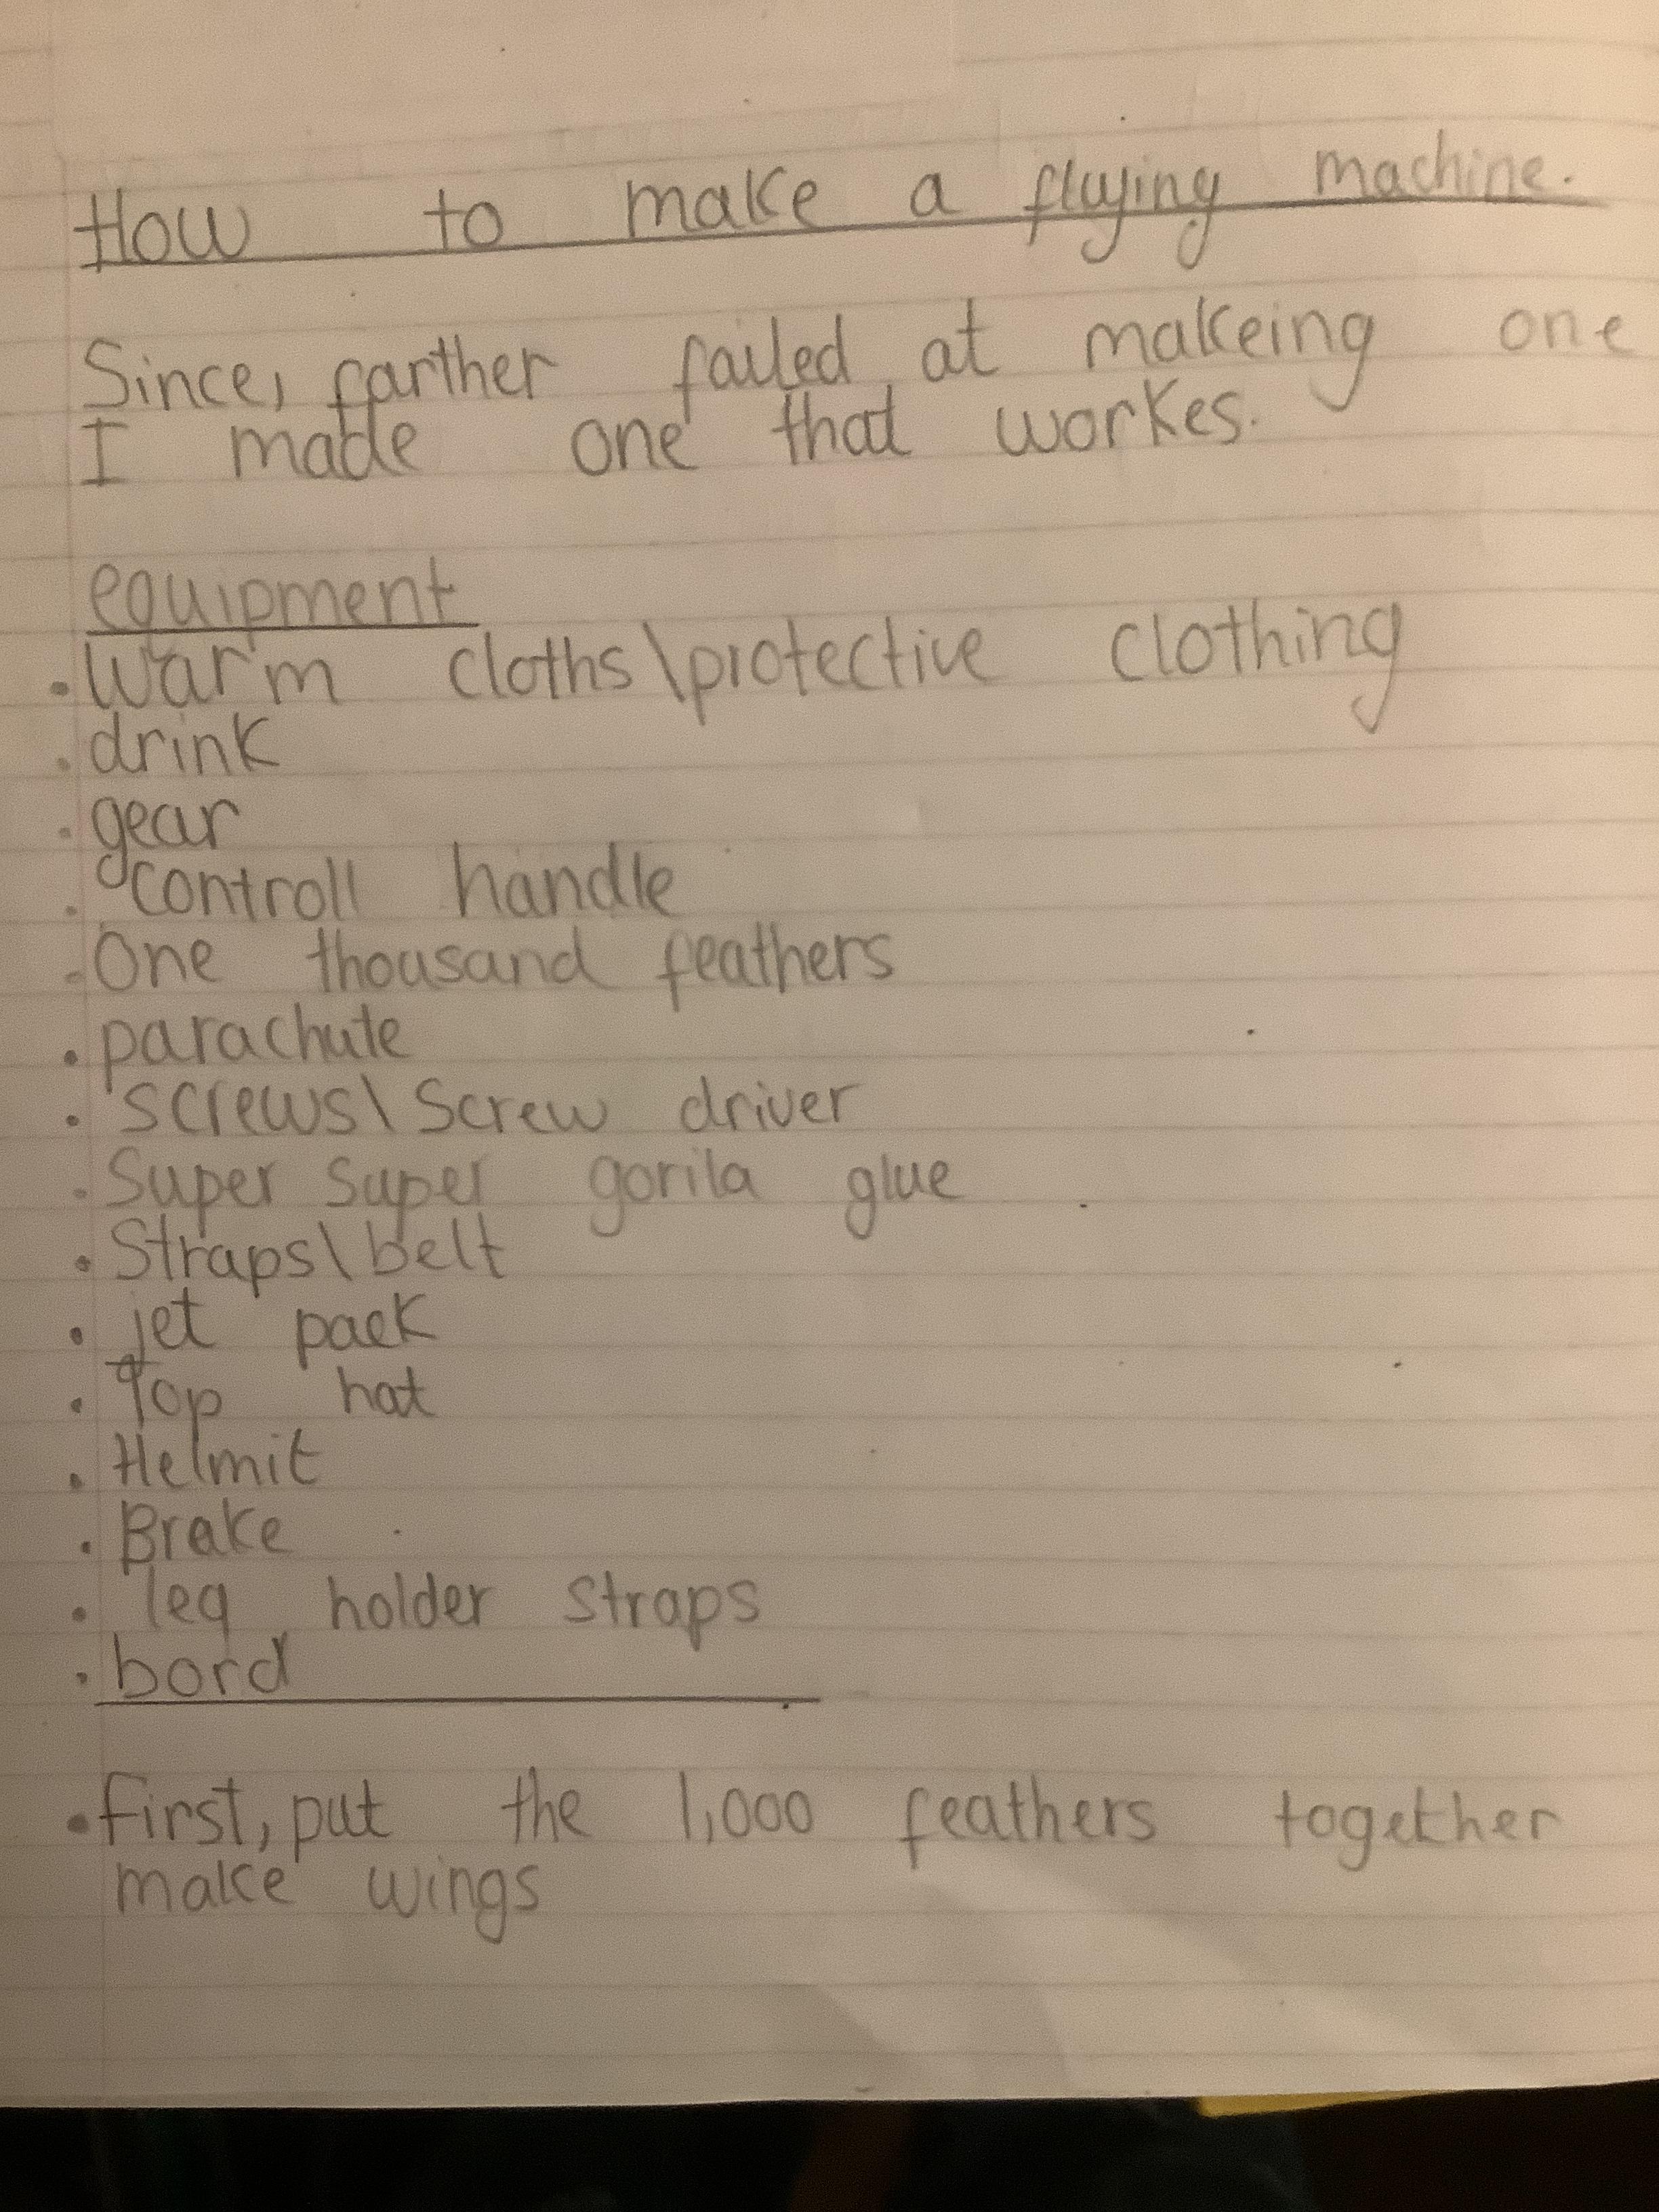 How to make a flying machine.
Since, farther failed at makeing one
I made one that workes.
equipment
• warm cloths\protective clothing
• drink
• gear
• controll handle
• One thousand feathers
• parachute
• screws\Screw driver
• Super super gorila glue
• Straps\belt
• jet pack
• Top hat
• Helmit
• Brake
• leg holder straps
• bord
• First, put the 1,000 feathers together
make wings